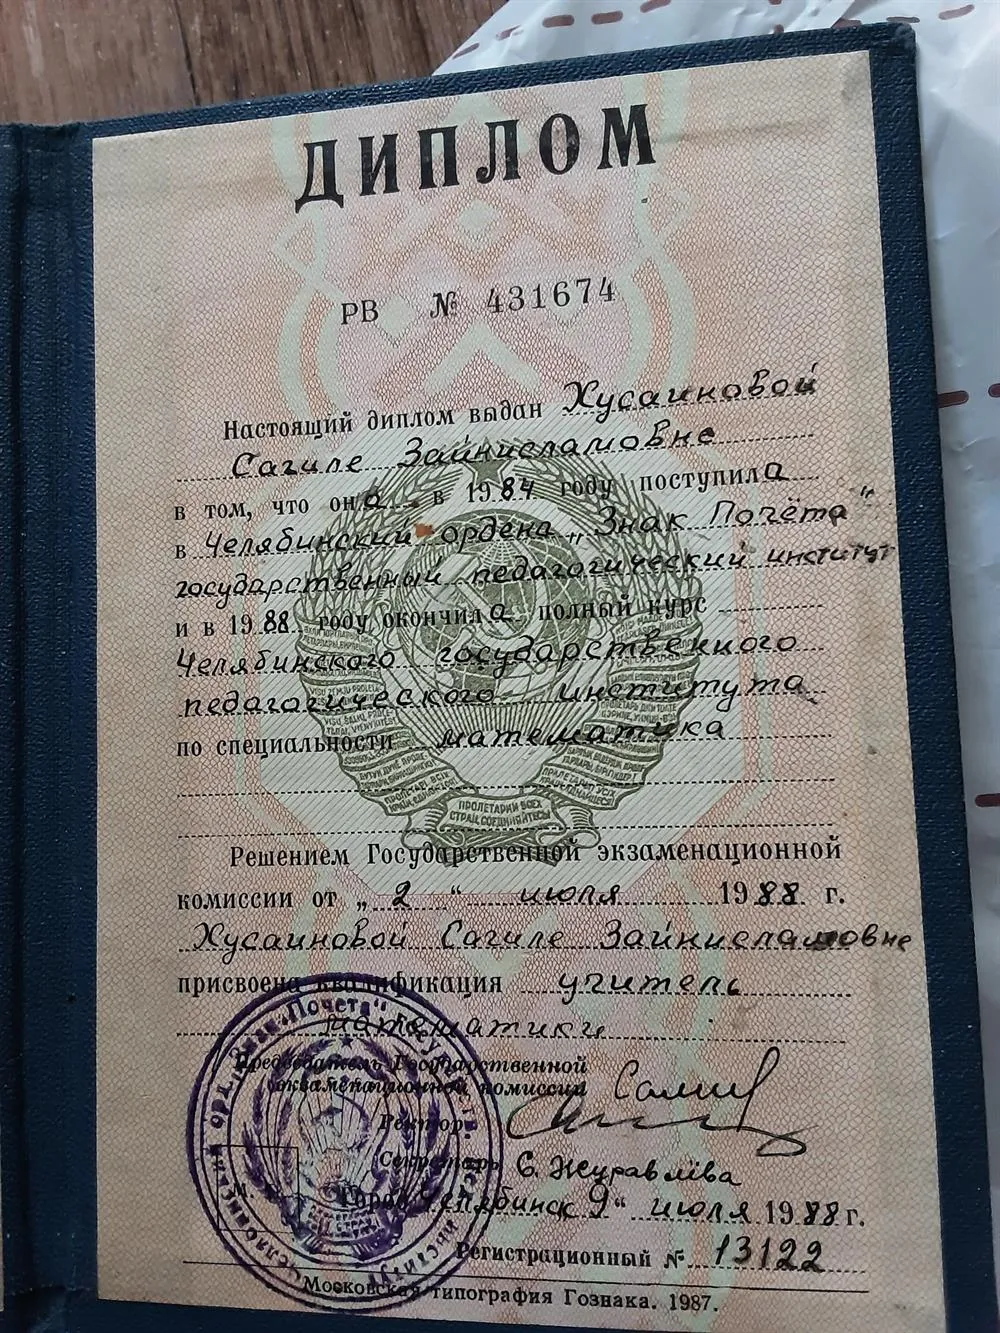 ДИПЛОМ
РВ № 431674
Настоящий диплом выдан Хусаиновой
Сагиле Зайнисламовне
в том, что она в 1984 году поступила
в Челябинский ордена „Знак Почёта“
государственный педагогический институт
и в 1988 году окончила полный курс
Челябинского государственного
педагогического института
по специальности математика
ПРОЛЕТАРИИ ВСЕХ
СТРАН, СОЕДИНЯЙТЕСЬ!
Решением Государственной экзаменационной
комиссии от „2“ июля 1988 г.
Хусаиновой Сагиле Зайнисламовне
присвоена квалификация учитель
математики
Председатель Государственной
экзаменационной комиссии
Ректор
Секретарь С. Журавлёва
Город Челябинск 9“ июля 1988 г.
Регистрационный № 13122
Московская типография Гознака. 1987.